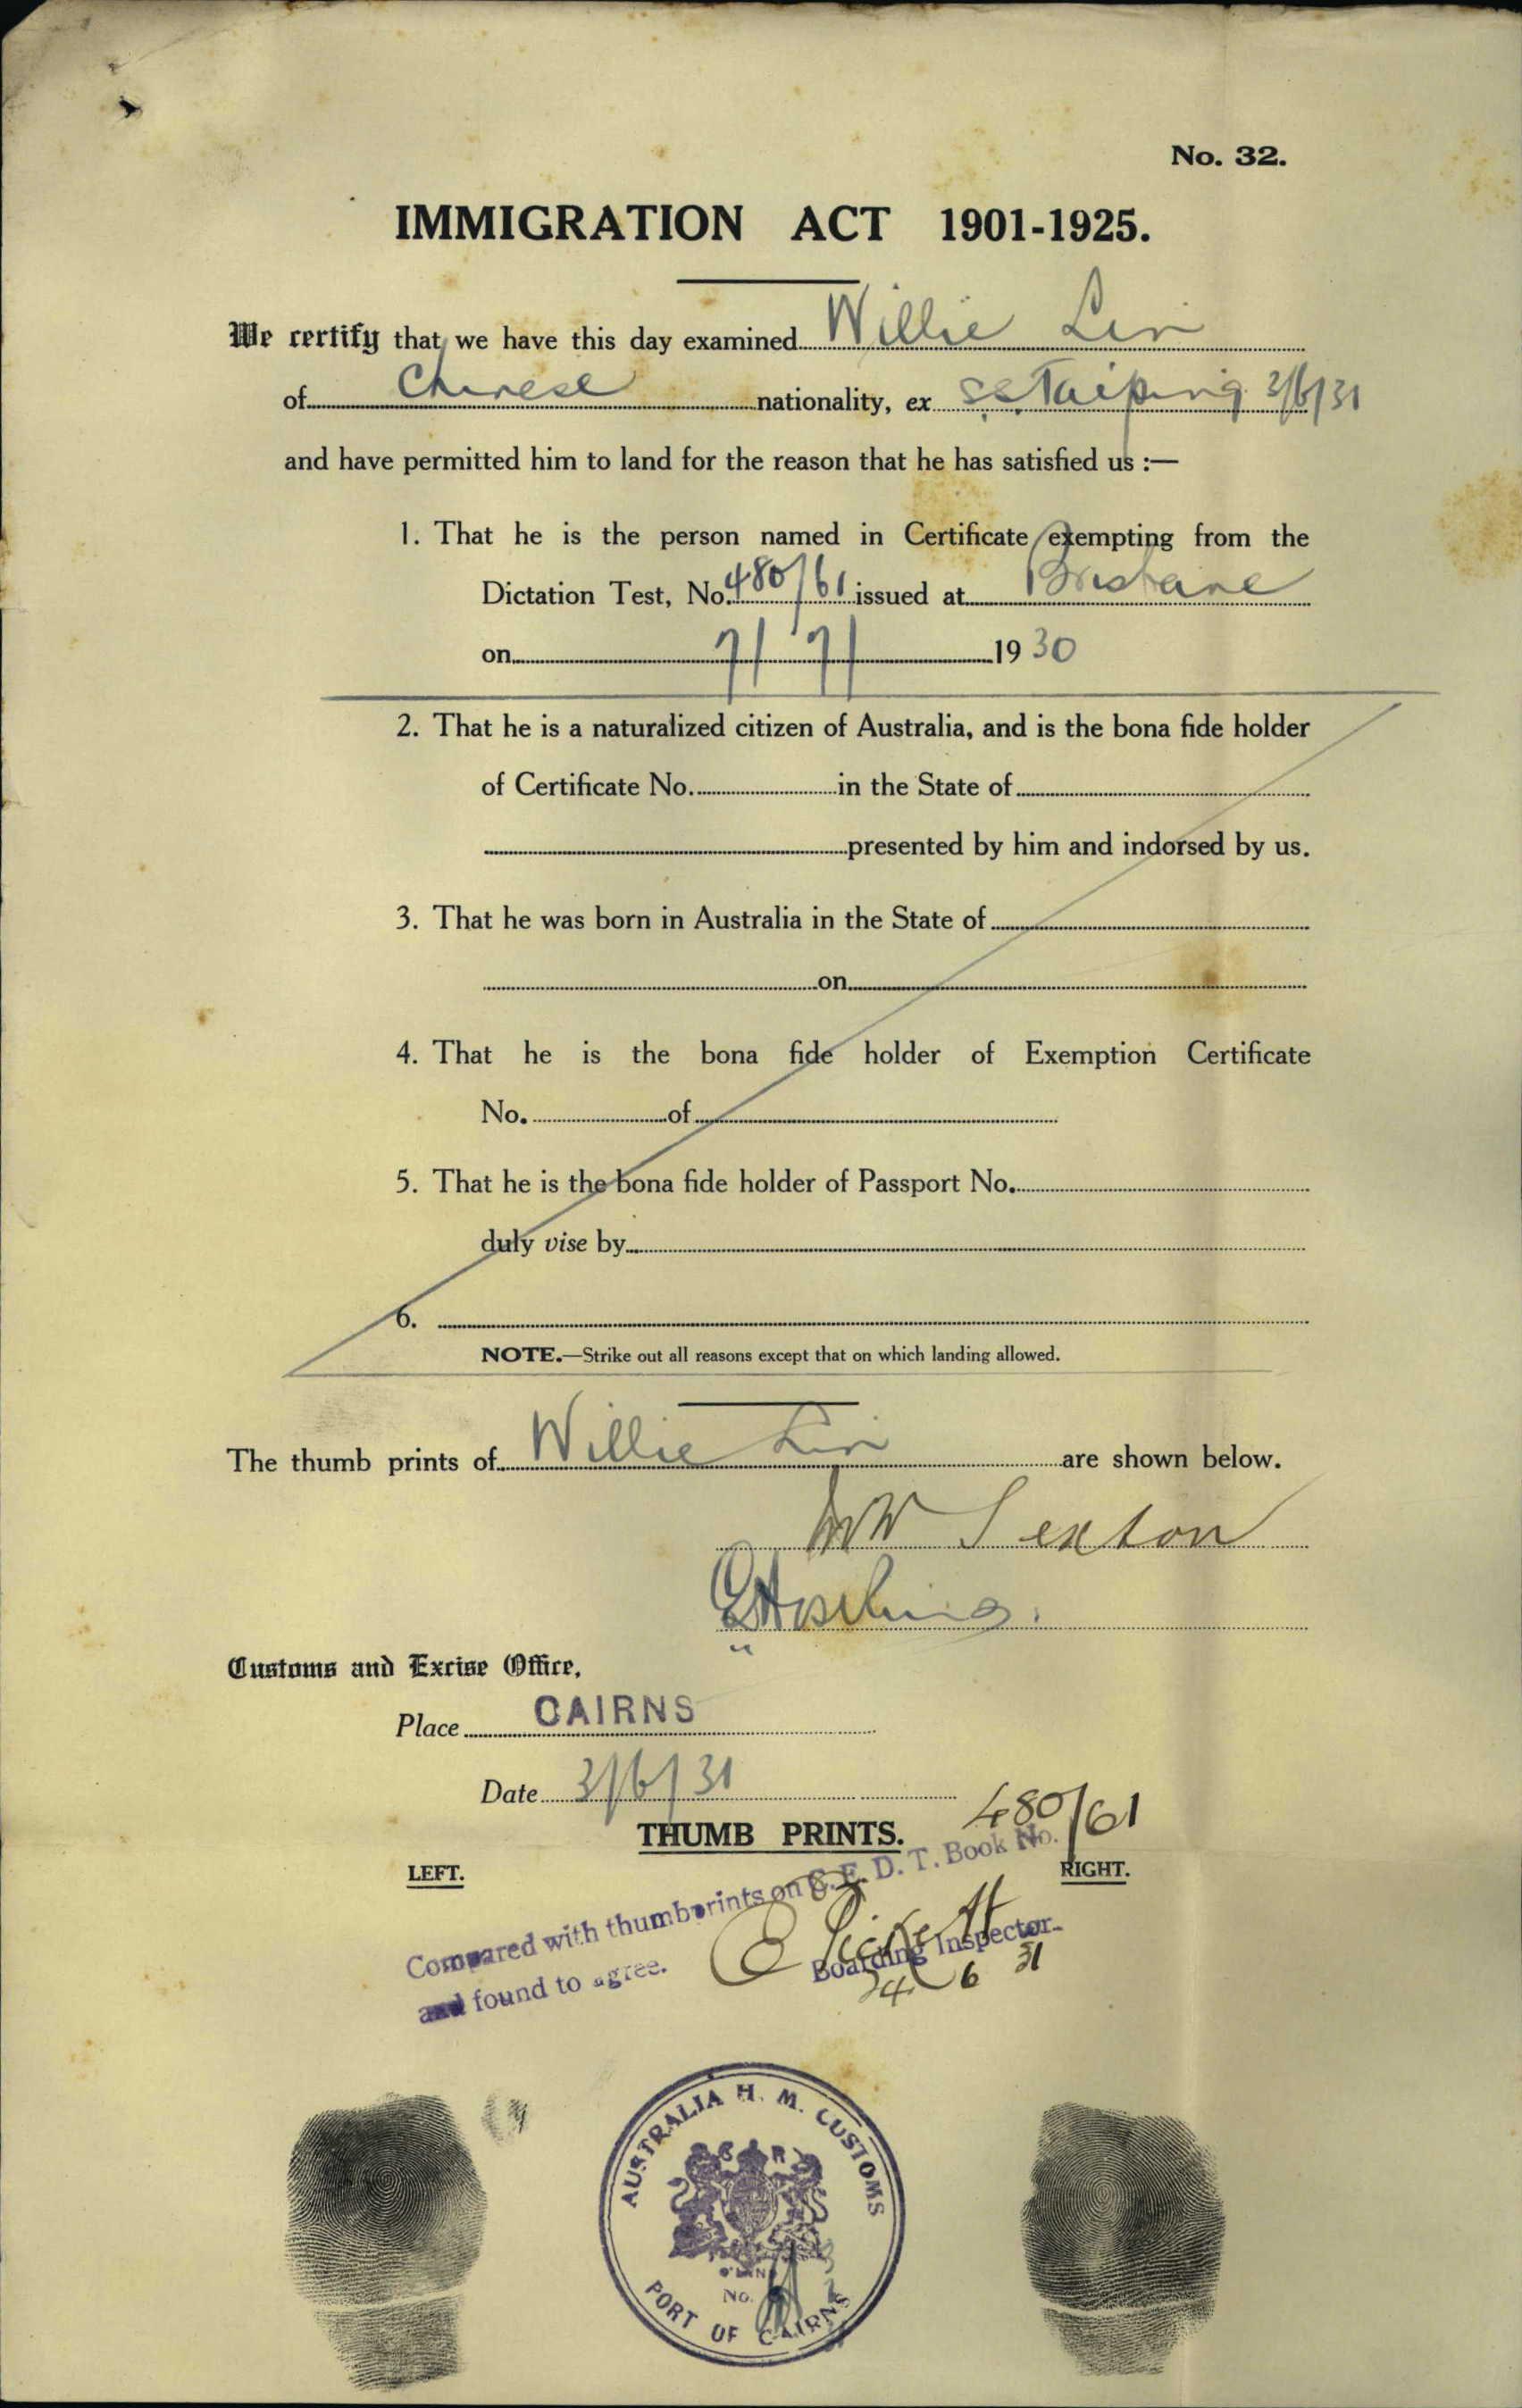 No. 32.
IMMIGRATION ACT 1901-1925.
We certify that we have this day examined Willie Lin
of Chinese nationality, ex ss Taiping 3/6/31
and have permitted him to land for the reason that he has satisfied us :—
1. That he is the person named in Certificate exempting from the
Dictation Test, No. 480/61 issued at Brisbane
on 7/7/ 1930
2. That he is a naturalized citizen of Australia, and is the bona fide holder
of Certificate No. in the State of
presented by him and indorsed by us.
3. That he was born in Australia in the State of
on
4. That he is the bona fide holder of Exemption Certificate
No. of
5. That he is the bona fide holder of Passport No.
duly vise by
6.
NOTE.—Strike out all reasons except that on which landing allowed.
The thumb prints of Willie Lin are shown below.
Sexton
Customs and Excise Office,
Place CAIRNS
Date 3/6/31
480/61
THUMB PRINTS.
LEFT. RIGHT.
Compared with thumbprints on C. E. D. T. Book No.
and found to agree.
Boarding Inspector
24 6 31
AUSTRALIA H. M. CUSTOMS
No.
PORT OF CAIRNS